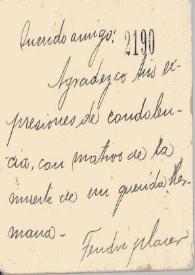 Querido amigo: 2190
Agradezco tus ex-
presiones de condolen-
cia, con motivo de la
muerte de mi querida her-
mana.-
Tendré placer